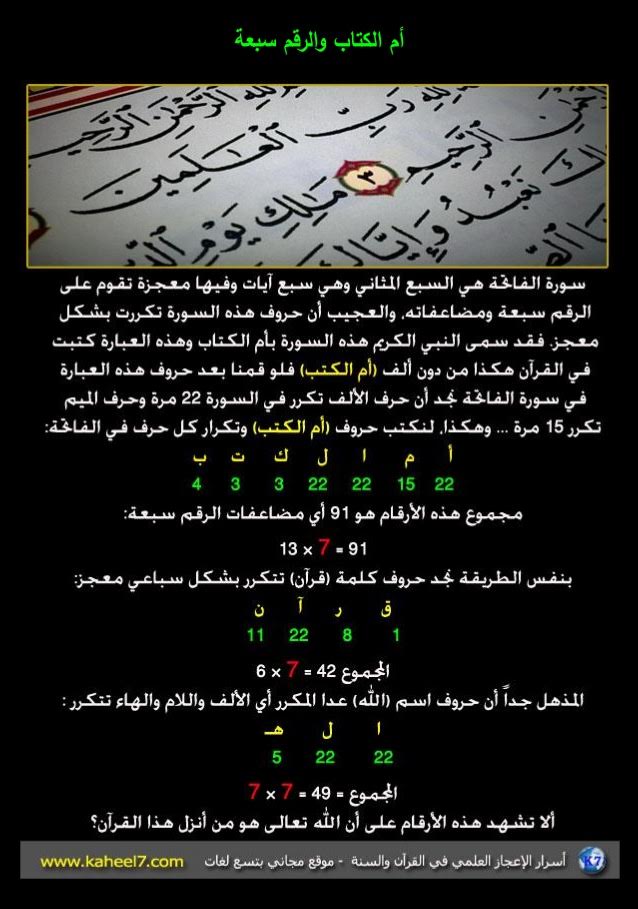 أم الكتاب والرقم سبعة
ٱلرَّحْمَٰنِ ٱلرَّحِيمِ
رَبِّ ٱلْعَٰلَمِينَ
ٱلرَّحِيمِ ٣ مَٰلِكِ يَوْمِ
نَعْبُدُ وَإِيَّاكَ
سورة الفاتحة هي السبع المثاني وهي سبع آيات وفيها معجزة تقوم على
الرقم سبعة ومضاعفاته، والعجيب أن حروف هذه السورة تكررت بشكل
معجز. فقد سمى النبي الكريم هذه السورة بأم الكتاب وهذه العبارة كتبت
في القرآن هكذا من دون ألف (أم الكتب) فلو قمنا بعد حروف هذه العبارة
في سورة الفاتحة نجد أن حرف الألف تكرر في السورة 22 مرة وحرف الميم
تكرر 15 مرة ... وهكذا، لنكتب حروف (أم الكتب) وتكرار كل حرف في الفاتحة:
أ م ا ل ك ت ب
22 15 22 22 3 3 4
مجموع هذه الأرقام هو 91 أي مضاعفات الرقم سبعة:
91 = 7 × 13
بنفس الطريقة نجد حروف كلمة (قرآن) تتكرر بشكل سباعي معجز:
ق ر آ ن
1 8 22 11
المجموع 42 = 7 × 6
المذهل جداً أن حروف اسم (الله) عدا المكرر أي الألف واللام والهاء تتكرر :
ا ل هـ
22 22 5
المجموع = 49 = 7 × 7
ألا تشهد هذه الأرقام على أن الله تعالى هو من أنزل هذا القرآن؟
أسرار الإعجاز العلمي في القرآن والسنة - موقع مجاني بتسع لغات www.kaheel7.com
K7